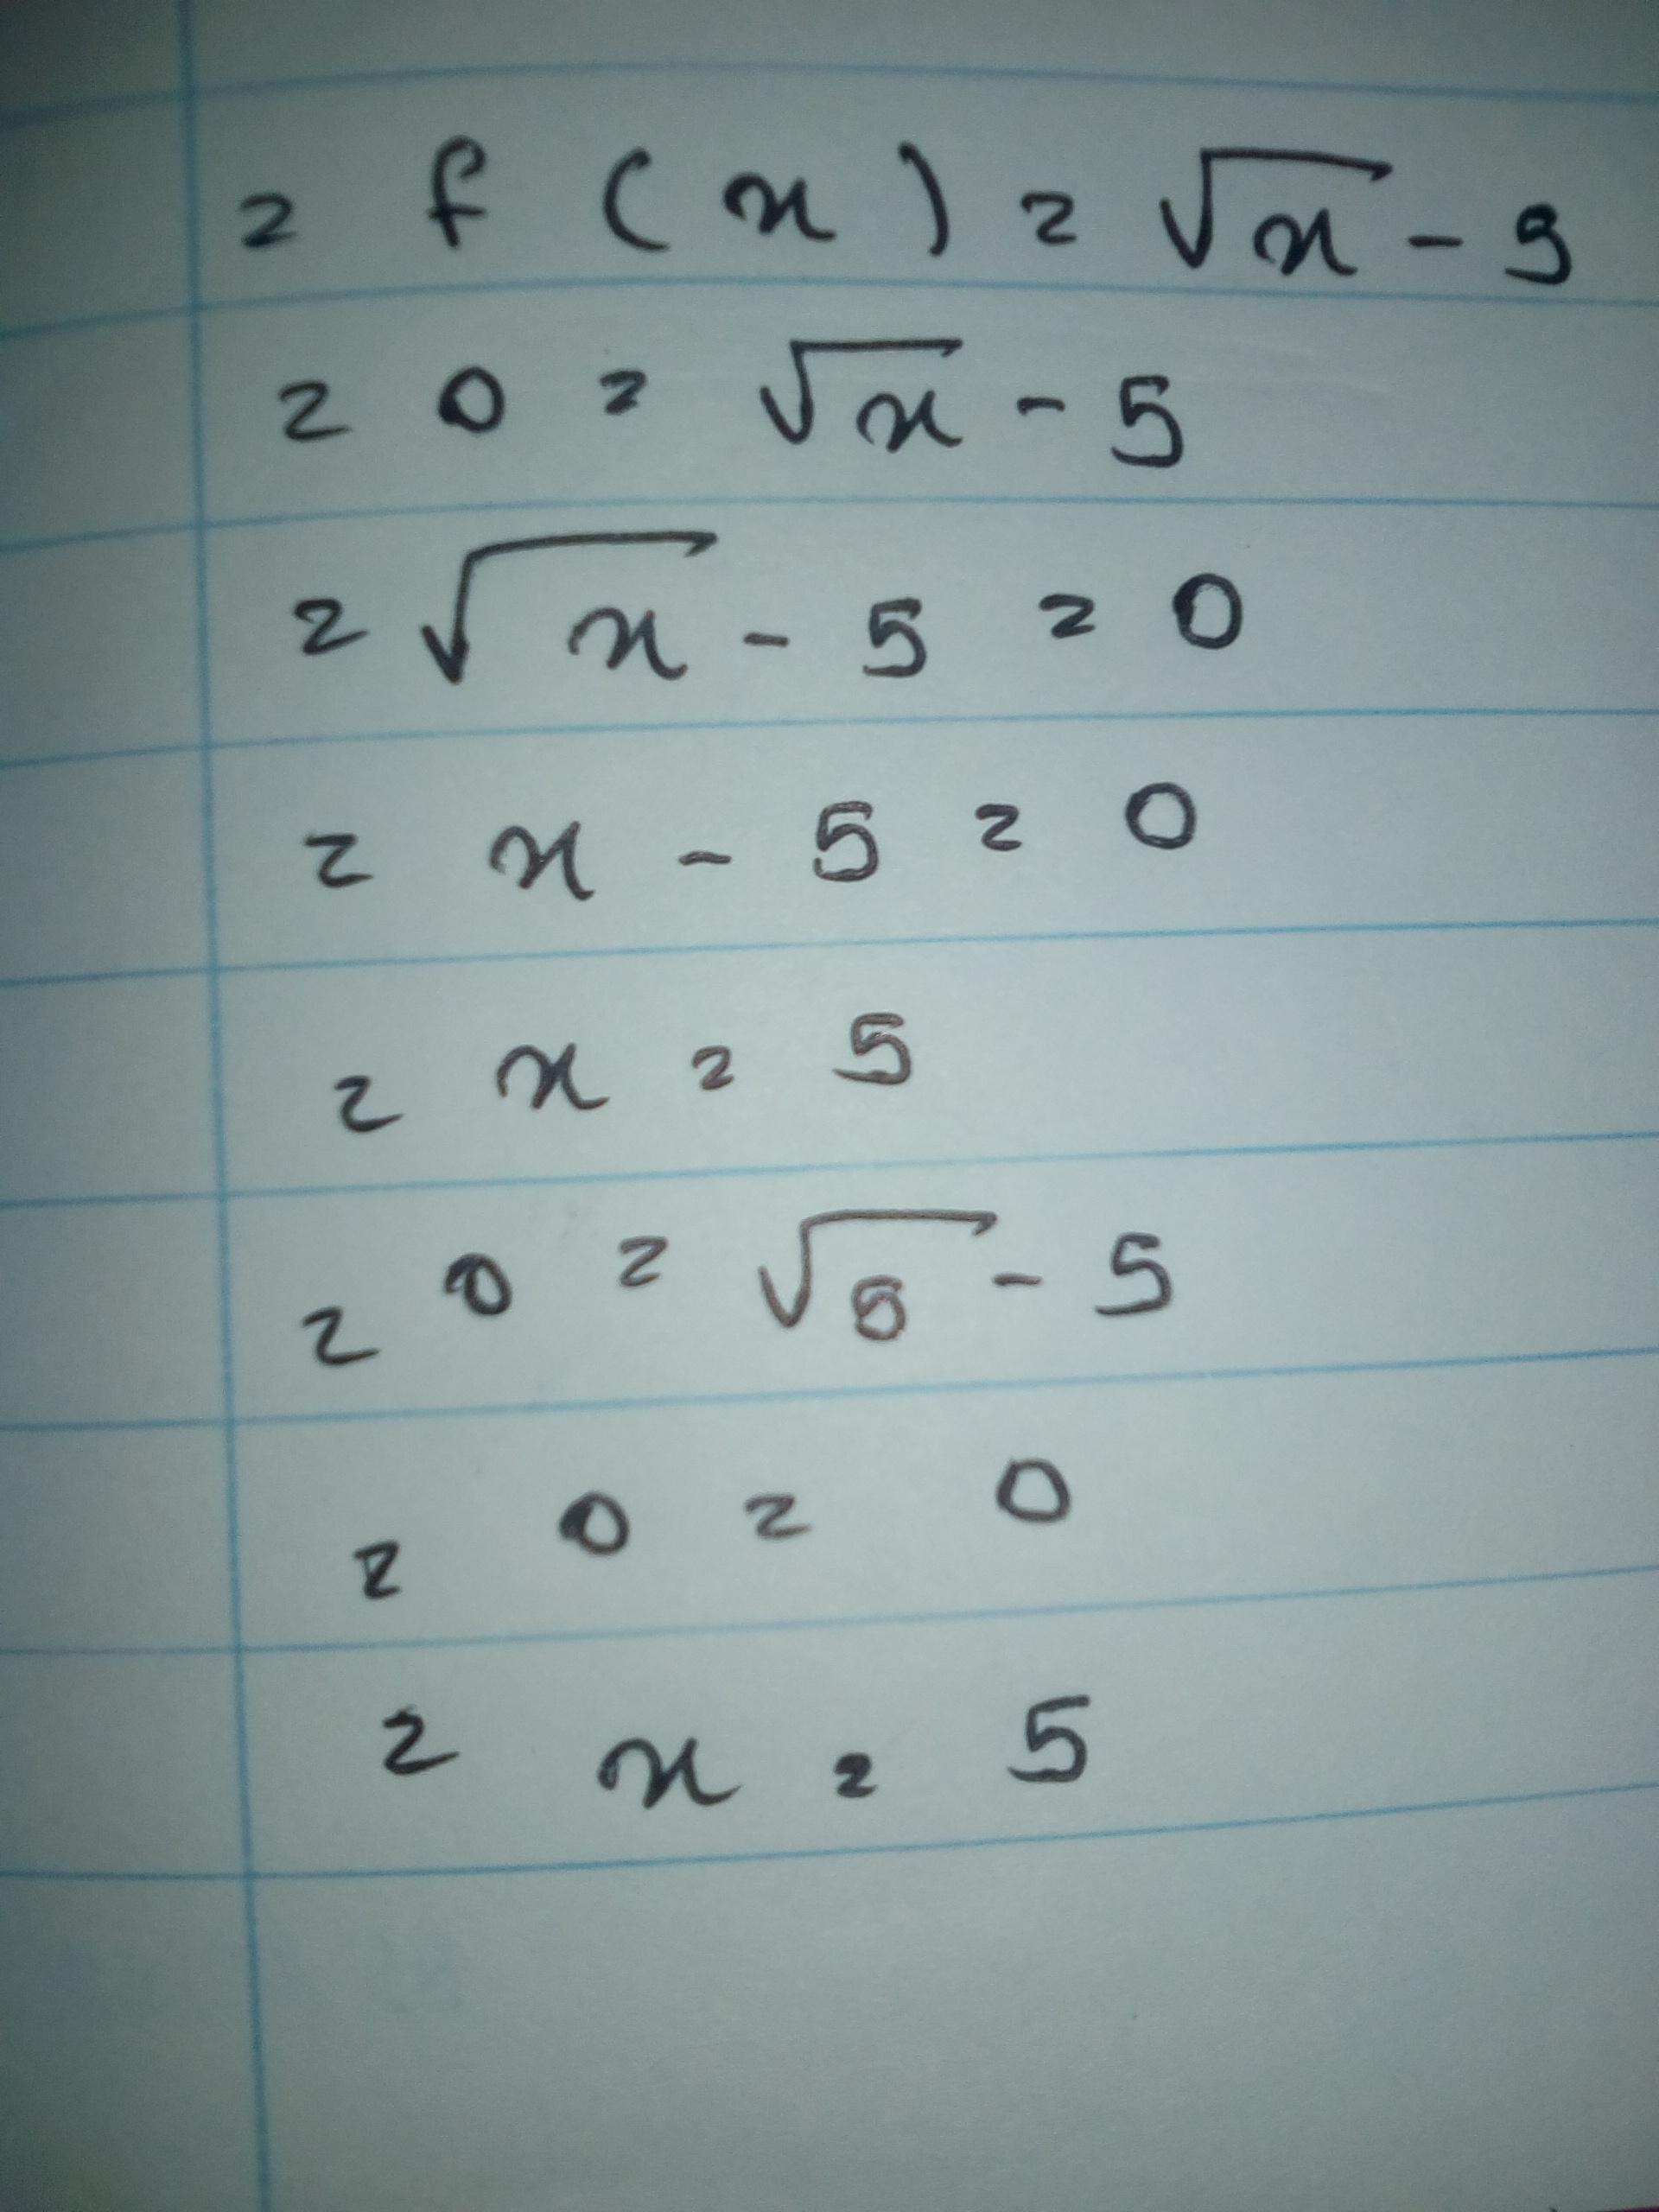 = f(x) = √x - 5
= 0 = √x - 5
= √x - 5 = 0
= x - 5 = 0
= x = 5
= 0 = √5 - 5
= 0 = 0
= x = 5